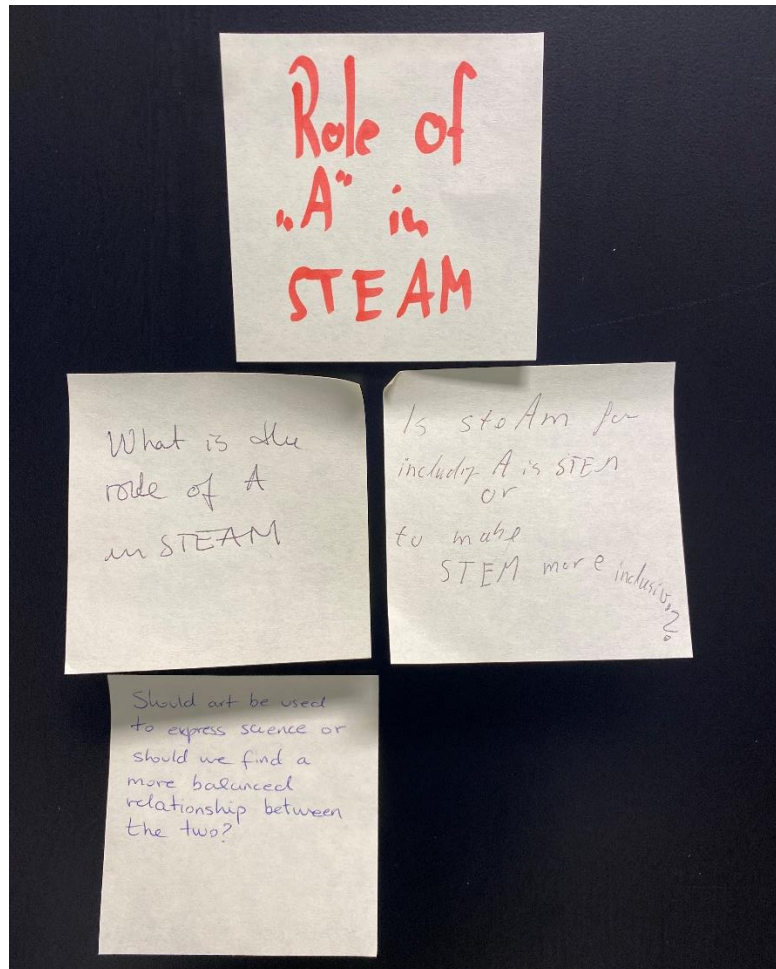 Role of
„A” in
STEAM
What is the
role of A
in STEAM
Is steAm for
includig A is STEM
or
to make
STEM more inclusive?
Should art be used
to express science or
should we find a
more balanced
relationship between
the two?